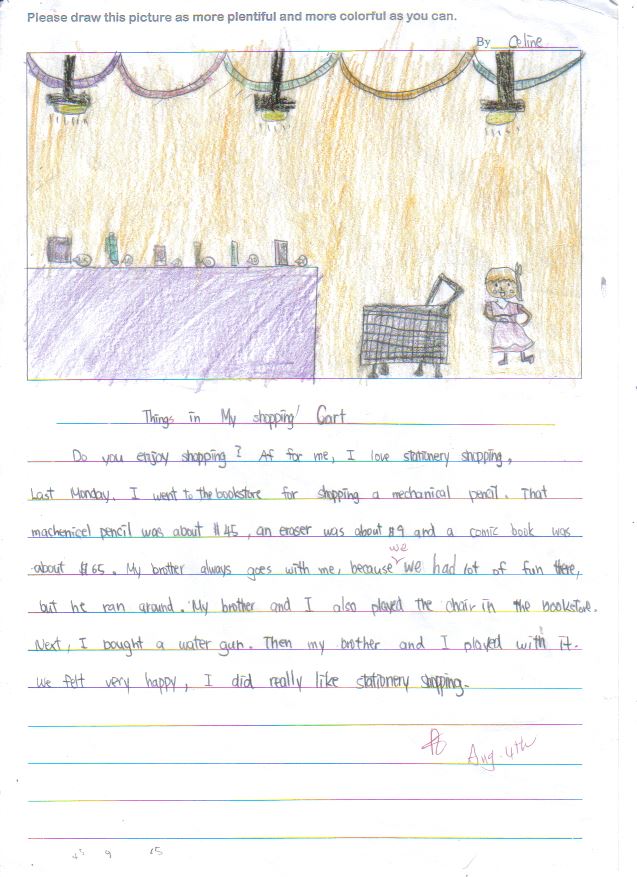 Please draw this picture as more plentiful and more colorful as you can.
By Celine
Things in My shopping Cart
Do you enjoy shopping? As for me, I love stationery shopping,
Last Monday, I went to the bookstore for shopping a mechanical pencil. That
machenicel pencil was about $45, an eraser was about $9 and a comic book was
about $65. My brother always goes with me, because we had lot of fun there,
we
but he ran around. My brother and I also played the chair in the bookstore.
Next, I bought a water gun. Then my brother and I played with it.
We felt very happy, I did really like stationery shopping.
Aug. 4th